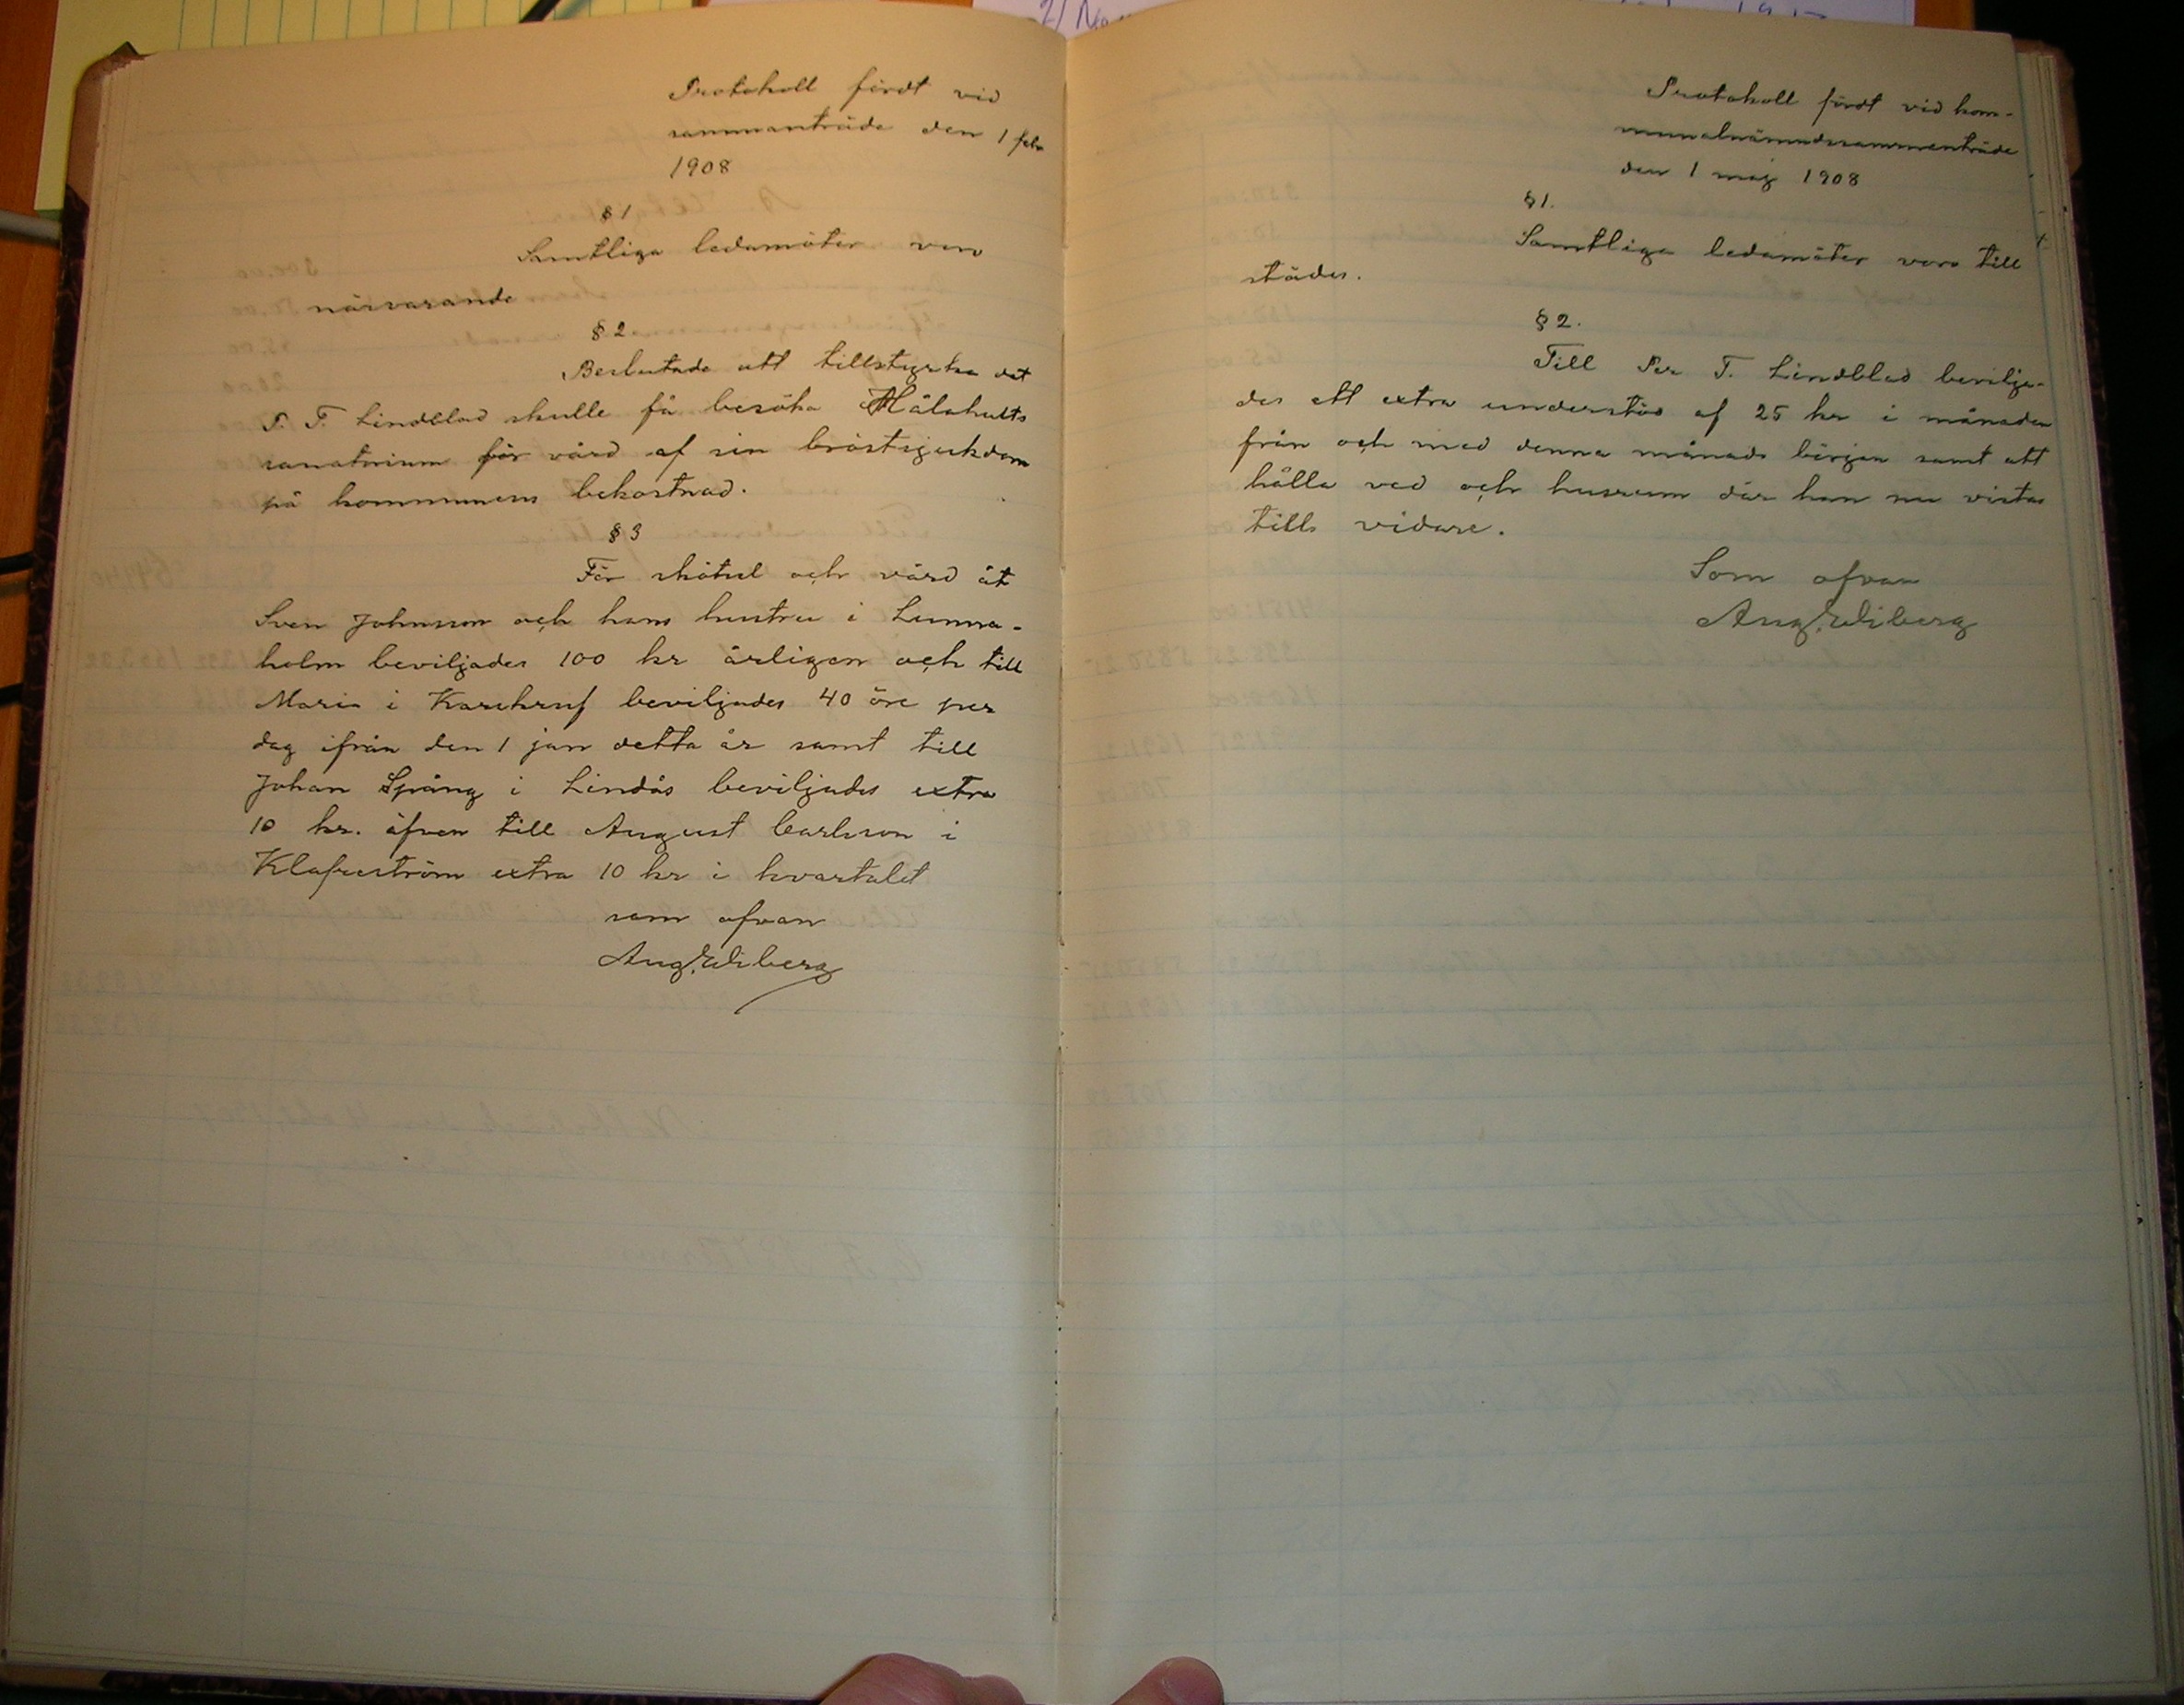 Protokoll fördt vid
sammanträde den 1 febr
1908
§ 1
Samtliga ledamöter voro
närvarande
§ 2
Beslutade att tillstyrka att
P. T. Lindblad skulle få besöka Hålahults
sanatorium för vård af sin bröstsjukdom
på kommunens bekostnad.
§ 3
För skötsel och vård åt
Sven Johnsson och hans hustru i Lunna-
holm beviljades 100 kr årligen och till
Maria i beviljades 40 öre per
dag ifrån den 1 jan detta år samt till
Johan Språng i Lindås beviljades extra
10 kr. äfven till August Carlsson i
Klafreström extra 10 kr i kvartalet
som ofvan
Aug. Wiberg
Protokoll fördt vid kom-
munalnämndssammenträde
den 1 maj 1908
§ 1.
Samtliga ledamöter voro till
städes.
§ 2.
Till Per T. Lindblad bevilja-
des ett extra understöd af 25 kr i månaden
från och med denna månads början samt att
hålla ved och husrum där han nu vistas
tills vidare.
Som ofvan
Aug. Wiberg